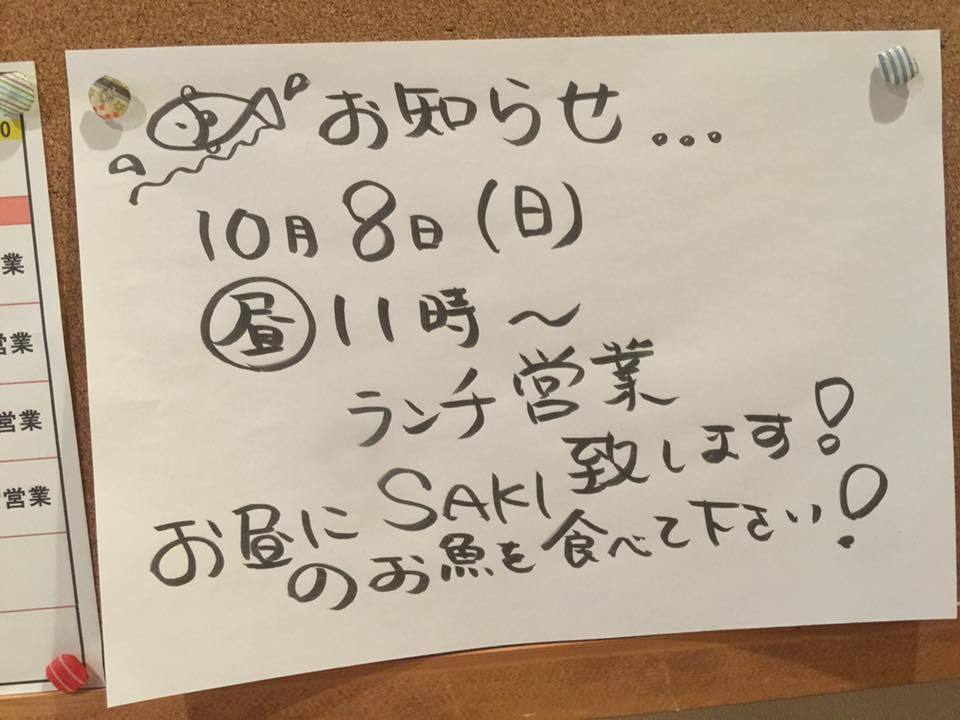 お知らせ...
10月8日(日)
昼 11時～
ランチ営業
致します!
お昼にSAKI
のお魚を食べて下さい!
業
営業
営業
営業
0